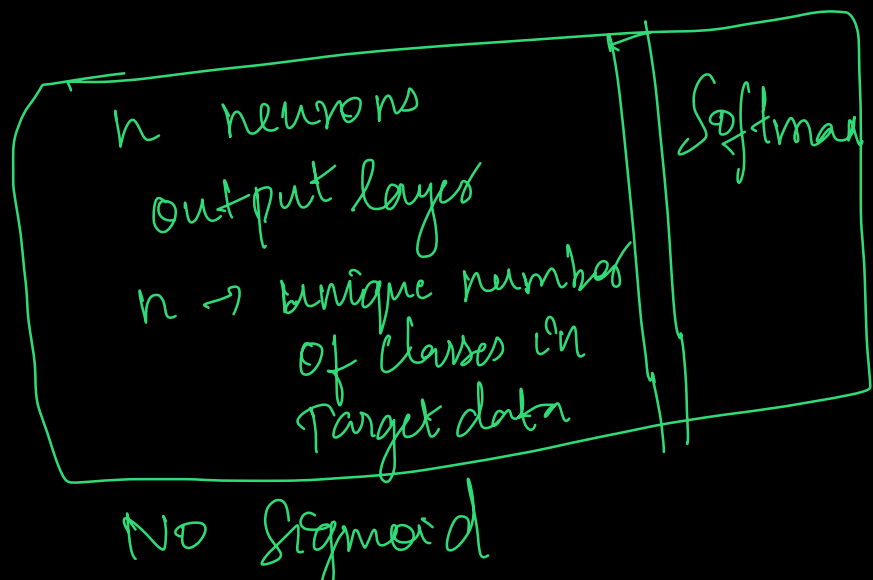 n neurons
output layer
n → unique number
of classes in
Target data
Softmax
No Sigmoid